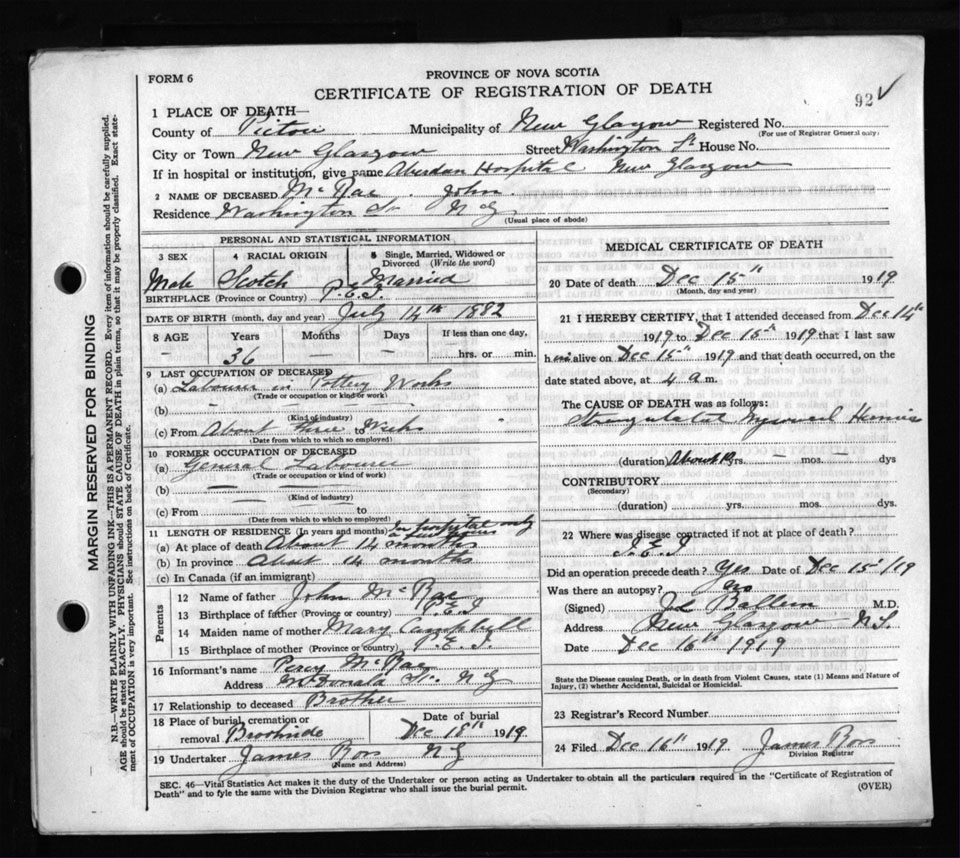 PROVINCE OF NOVA SCOTIA
FORM 6
CERTIFICATE OF REGISTRATION OF DEATH
92
1 PLACE OF DEATH—
County of Pictou Municipality of New Glasgow Registered No.
(For use of Registrar General only)
City or Town New Glasgow Street Washington St House No.
If in hospital or institution, give name Aberdeen Hospital New Glasgow
2 NAME OF DECEASED McRae John
Residence Washington St N G
(Usual place of abode)
PERSONAL AND STATISTICAL INFORMATION
3 SEX 4 RACIAL ORIGIN 5 Single, Married, Widowed or Divorced (Write the word)
Male Scotch Married
BIRTHPLACE (Province or Country) P.E.I.
DATE OF BIRTH (month, day and year) July 14th 1882
8 AGE Years Months Days If less than one day,
— 36 — — hrs. or min.
9 LAST OCCUPATION OF DECEASED
(a) Labourer in Pottery Works
(Trade or occupation or kind of work)
(b) — —
(Kind of industry)
(c) From About three to Weeks
(Date from which to which so employed)
10 FORMER OCCUPATION OF DECEASED
(a) General Labourer
(Trade or occupation or kind of work)
(b) — —
(Kind of industry)
(c) From — to
(Date from which to which so employed)
11 LENGTH OF RESIDENCE (In years and months) In hospital only
a few hours
(a) At place of death About 14 months
(b) In province About 14 months
(c) In Canada (if an immigrant)
Parents
12 Name of father John McRae
13 Birthplace of father (Province or country) P.E.I
14 Maiden name of mother Mary Campbell
15 Birthplace of mother (Province or country) P.E.I.
16 Informant's name Percy McRae
Address McDonald St. N G
17 Relationship to deceased Brother
18 Place of burial, cremation or removal Brookside Date of burial Dec 18th 1919
19 Undertaker James Ross N G
(Name and Address)
MEDICAL CERTIFICATE OF DEATH
20 Date of death Dec 15th 1919
(Month, day and year)
21 I HEREBY CERTIFY, that I attended deceased from Dec 14th
1919 to Dec 15th 1919 that I last saw
him alive on Dec 15th 1919 and that death occurred, on the
date stated above, at 4 a m.
The CAUSE OF DEATH was as follows:
Strangulated Inguinal Hernia
(duration) About yrs. — mos. — dys
CONTRIBUTORY
(Secondary)
(duration) yrs. mos. dys
22 Where was disease contracted if not at place of death?
P.E.I
Did an operation precede death? yes Date of Dec 15/19
Was there an autopsy? no
(Signed) M.D.
Address New Glasgow N.S.
Date Dec 16th 1919
State the Disease causing Death, or in death from Violent Causes, state (1) Means and Nature of
Injury, (2) whether Accidental, Suicidal or Homicidal.
23 Registrar's Record Number
24 Filed Dec 16th 1919 James Ross
Division Registrar
SEC. 46—Vital Statistics Act makes it the duty of the Undertaker or person acting as Undertaker to obtain all the particulars required in the "Certificate of Registration of
Death" and to fyle the same with the Division Registrar who shall issue the burial permit.
(OVER)
MARGIN RESERVED FOR BINDING
N.B.—WRITE PLAINLY WITH UNFADING INK—THIS IS A PERMANENT RECORD. Every item of information should be carefully supplied.
AGE should be stated EXACTLY. PHYSICIANS should STATE CAUSE OF DEATH in plain terms, so that it may be properly classified. Exact state-
ment of OCCUPATION is very important. See instructions on back of Certificate.